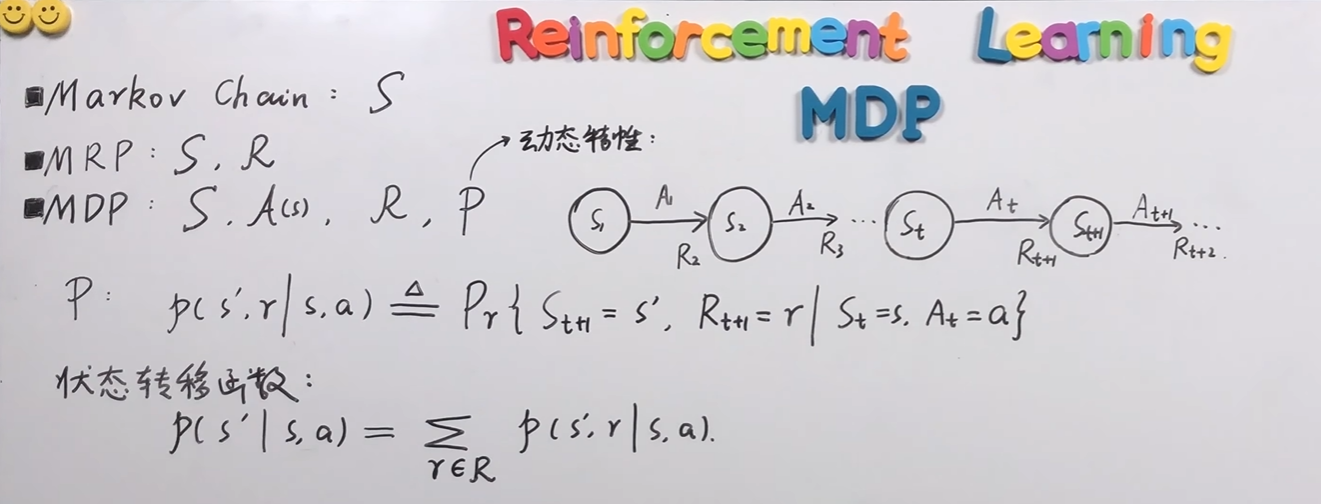 Reinforcement Learning
MDP
■Markov Chain: S
■MRP: S, R
■MDP: S, A(s), R, P
动态特性:
S₁ A₁ R₂ S₂ A₂ R₃ ... Sₜ Aₜ Rₜ₊₁ Sₜ₊₁ Aₜ₊₁ Rₜ₊₂ ...
P: p(s', r | s, a) ≜ Pr{ Sₜ₊₁ = s', Rₜ₊₁ = r | Sₜ = s, Aₜ = a}
状态转移函数:
p(s' | s, a) = ∑ r∈R p(s', r | s, a).